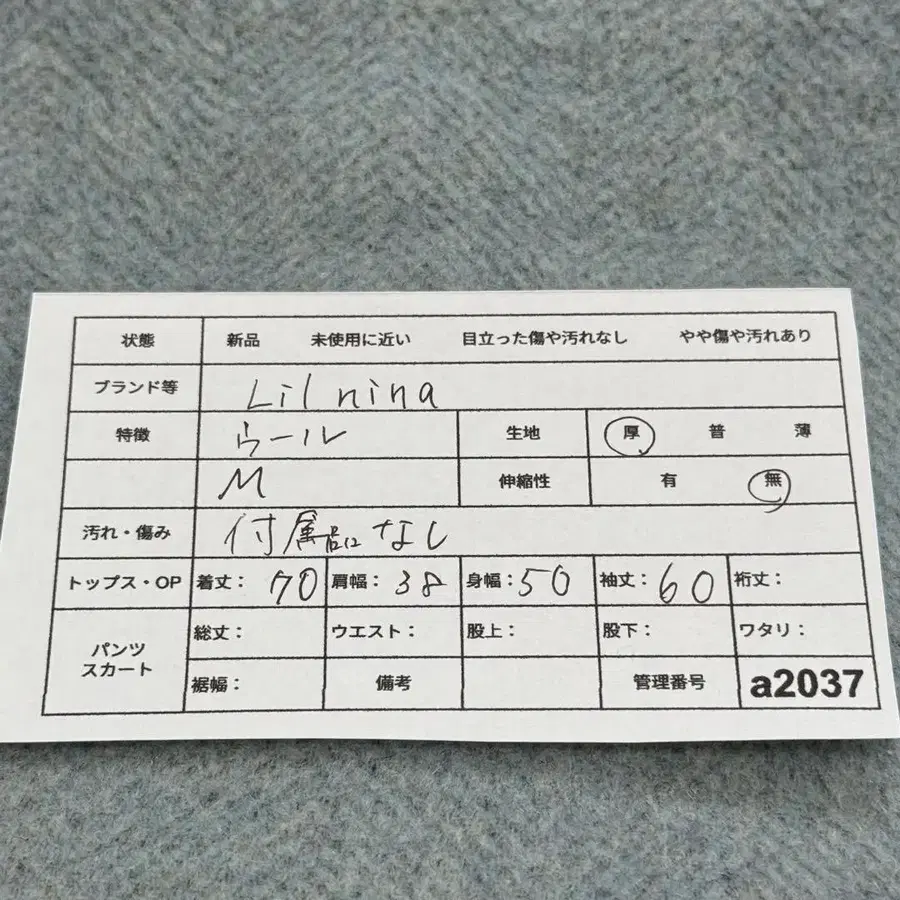 状態 新品 未使用に近い 目立った傷や汚れなし やや傷や汚れあり
ブランド等 Lilnina
特徴 ウール 生地 厚 普 薄
M 伸縮性 有 無
汚れ・傷み 付属品になし
トップス・OP 着丈：70 肩幅：38 身幅：50 袖丈：60 裄丈：
パンツ スカート 総丈： ウエスト： 股上： 股下： ワタリ：
裾幅： 備考 管理番号 a2037